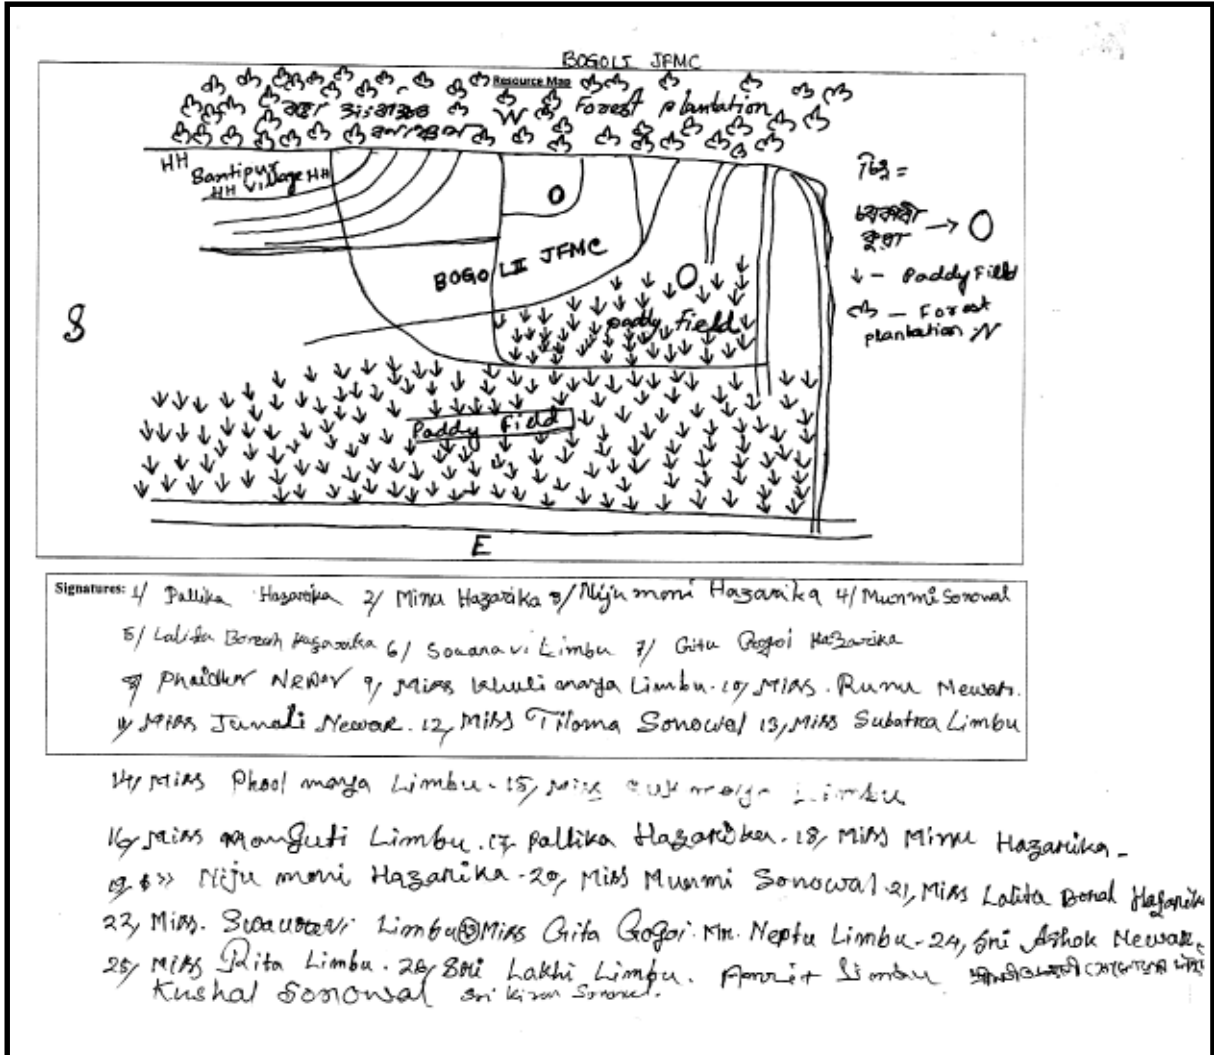 BOGOLI JFMC
Resource Map
W Forest plantation
HH
Bantipur
HH Village HH
BOGOLII JFMC
চিহ্ন =
চৰকাৰী
কুৱা → O
↓ - Paddy Field
- Forest
plantation N
paddy field
S
Paddy Field
E
Signatures: 1/ Pallika Hazarika 2/ Minu Hazarika 3/ Niju moni Hazarika 4/ Munmi Sonowal
5/ Lalita Borah Hazarika 6/ Limbu 7/ Gitu Gogoi Hazarika
8/ 9/ Miss Khuli maya Limbu. 10/ Miss. Runu Newar.
11/ Miss Junali Newar. 12, Miss Tiloma Sonowal 13, Miss Subatra Limbu
14, Miss Phool maya Limbu. 15, Miss maya Limbu
16, Miss Limbu. 17 Pallika Hazarika. 18, Miss Minu Hazarika -
19 Niju moni Hazarika - 20, Miss Munmi Sonowal 21, Miss Lalita Borah Hazarik
22, Miss. Limbu 23 Miss Gita Gogoi. Mr. Neptu Limbu - 24, Sri Ashok Newar.
25, Miss Rita Limbu. 26, Sri Lakhi Limbu. Amrit Limbu
Kushal Sonowal Sri Kiran Sonowal.